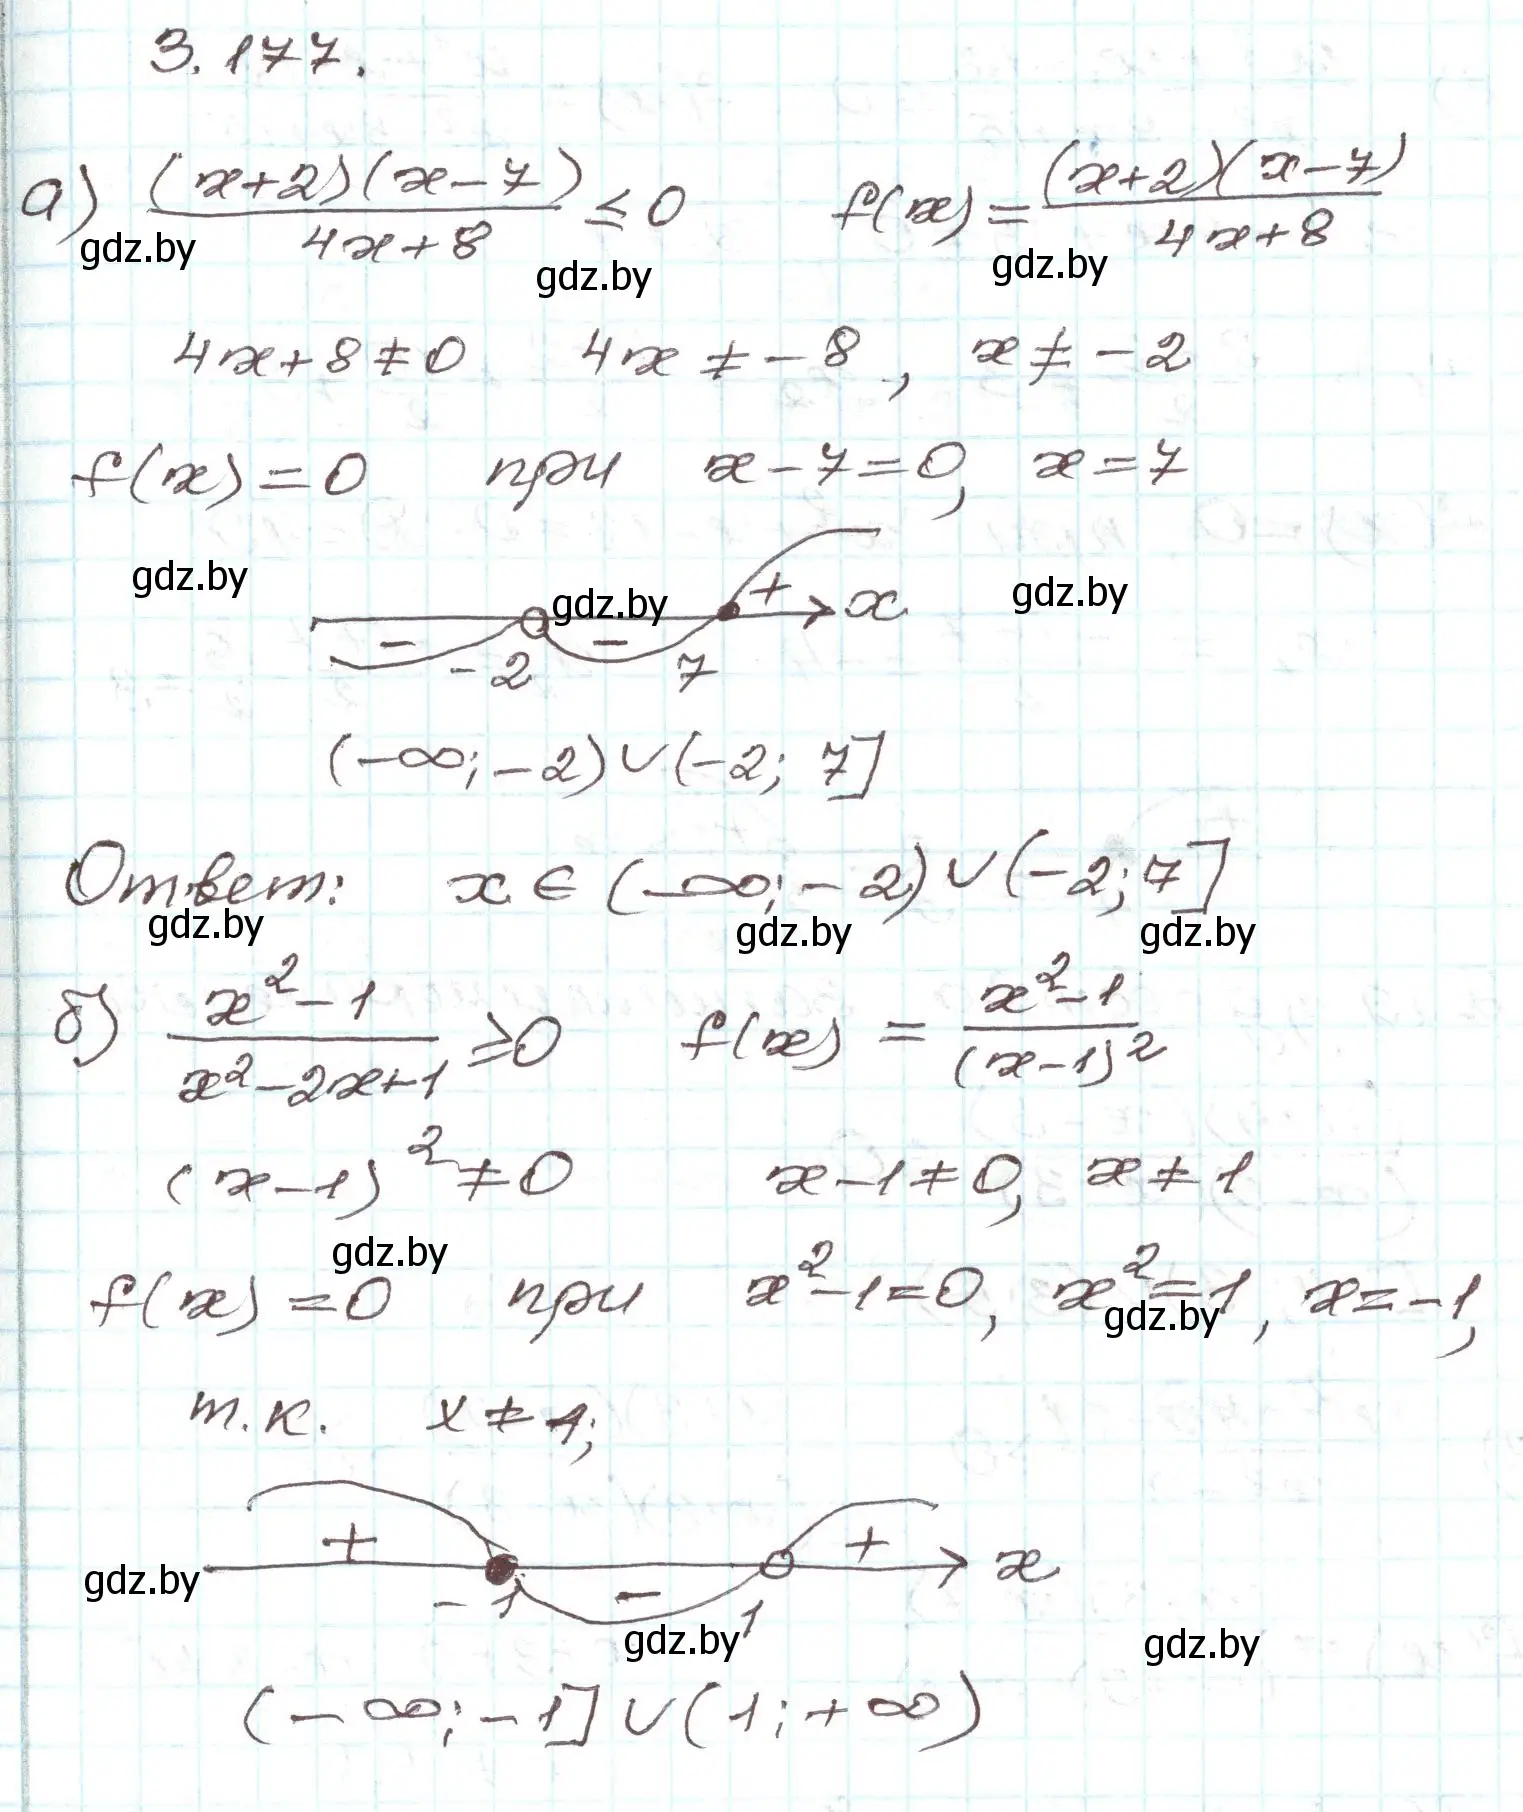 3.177.
а) (x+2)(x-7) / 4x+8 ≤ 0 f(x) = (x+2)(x-7) / 4x+8
gdz.by gdz.by gdz.by
4x+8≠0 4x ≠ -8, x ≠ -2
f(x) = 0 при x-7=0, x=7
gdz.by gdz.by + x gdz.by
- -2 - 7
(-∞; -2) ∪ (-2; 7]
Ответ: x ∈ (-∞; -2) ∪ (-2; 7]
gdz.by gdz.by gdz.by
б) x²-1 / x²-2x+1 ≥ 0 f(x) = x²-1 / (x-1)²
(x-1)² ≠ 0 x-1≠0, x≠1
gdz.by
f(x) = 0 при x²-1=0, x²=1, x=-1,
gdz.by
т.к. x ≠ 1;
+ + x
gdz.by -1 - 1
gdz.by gdz.by
(-∞; -1] ∪ (1; +∞)